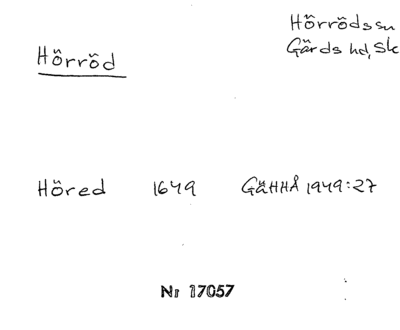 Hörröds sn
Gärds hd, Sk
Hörröd
Höred 1649 GäHHÅ 1949:27
Nr 17057